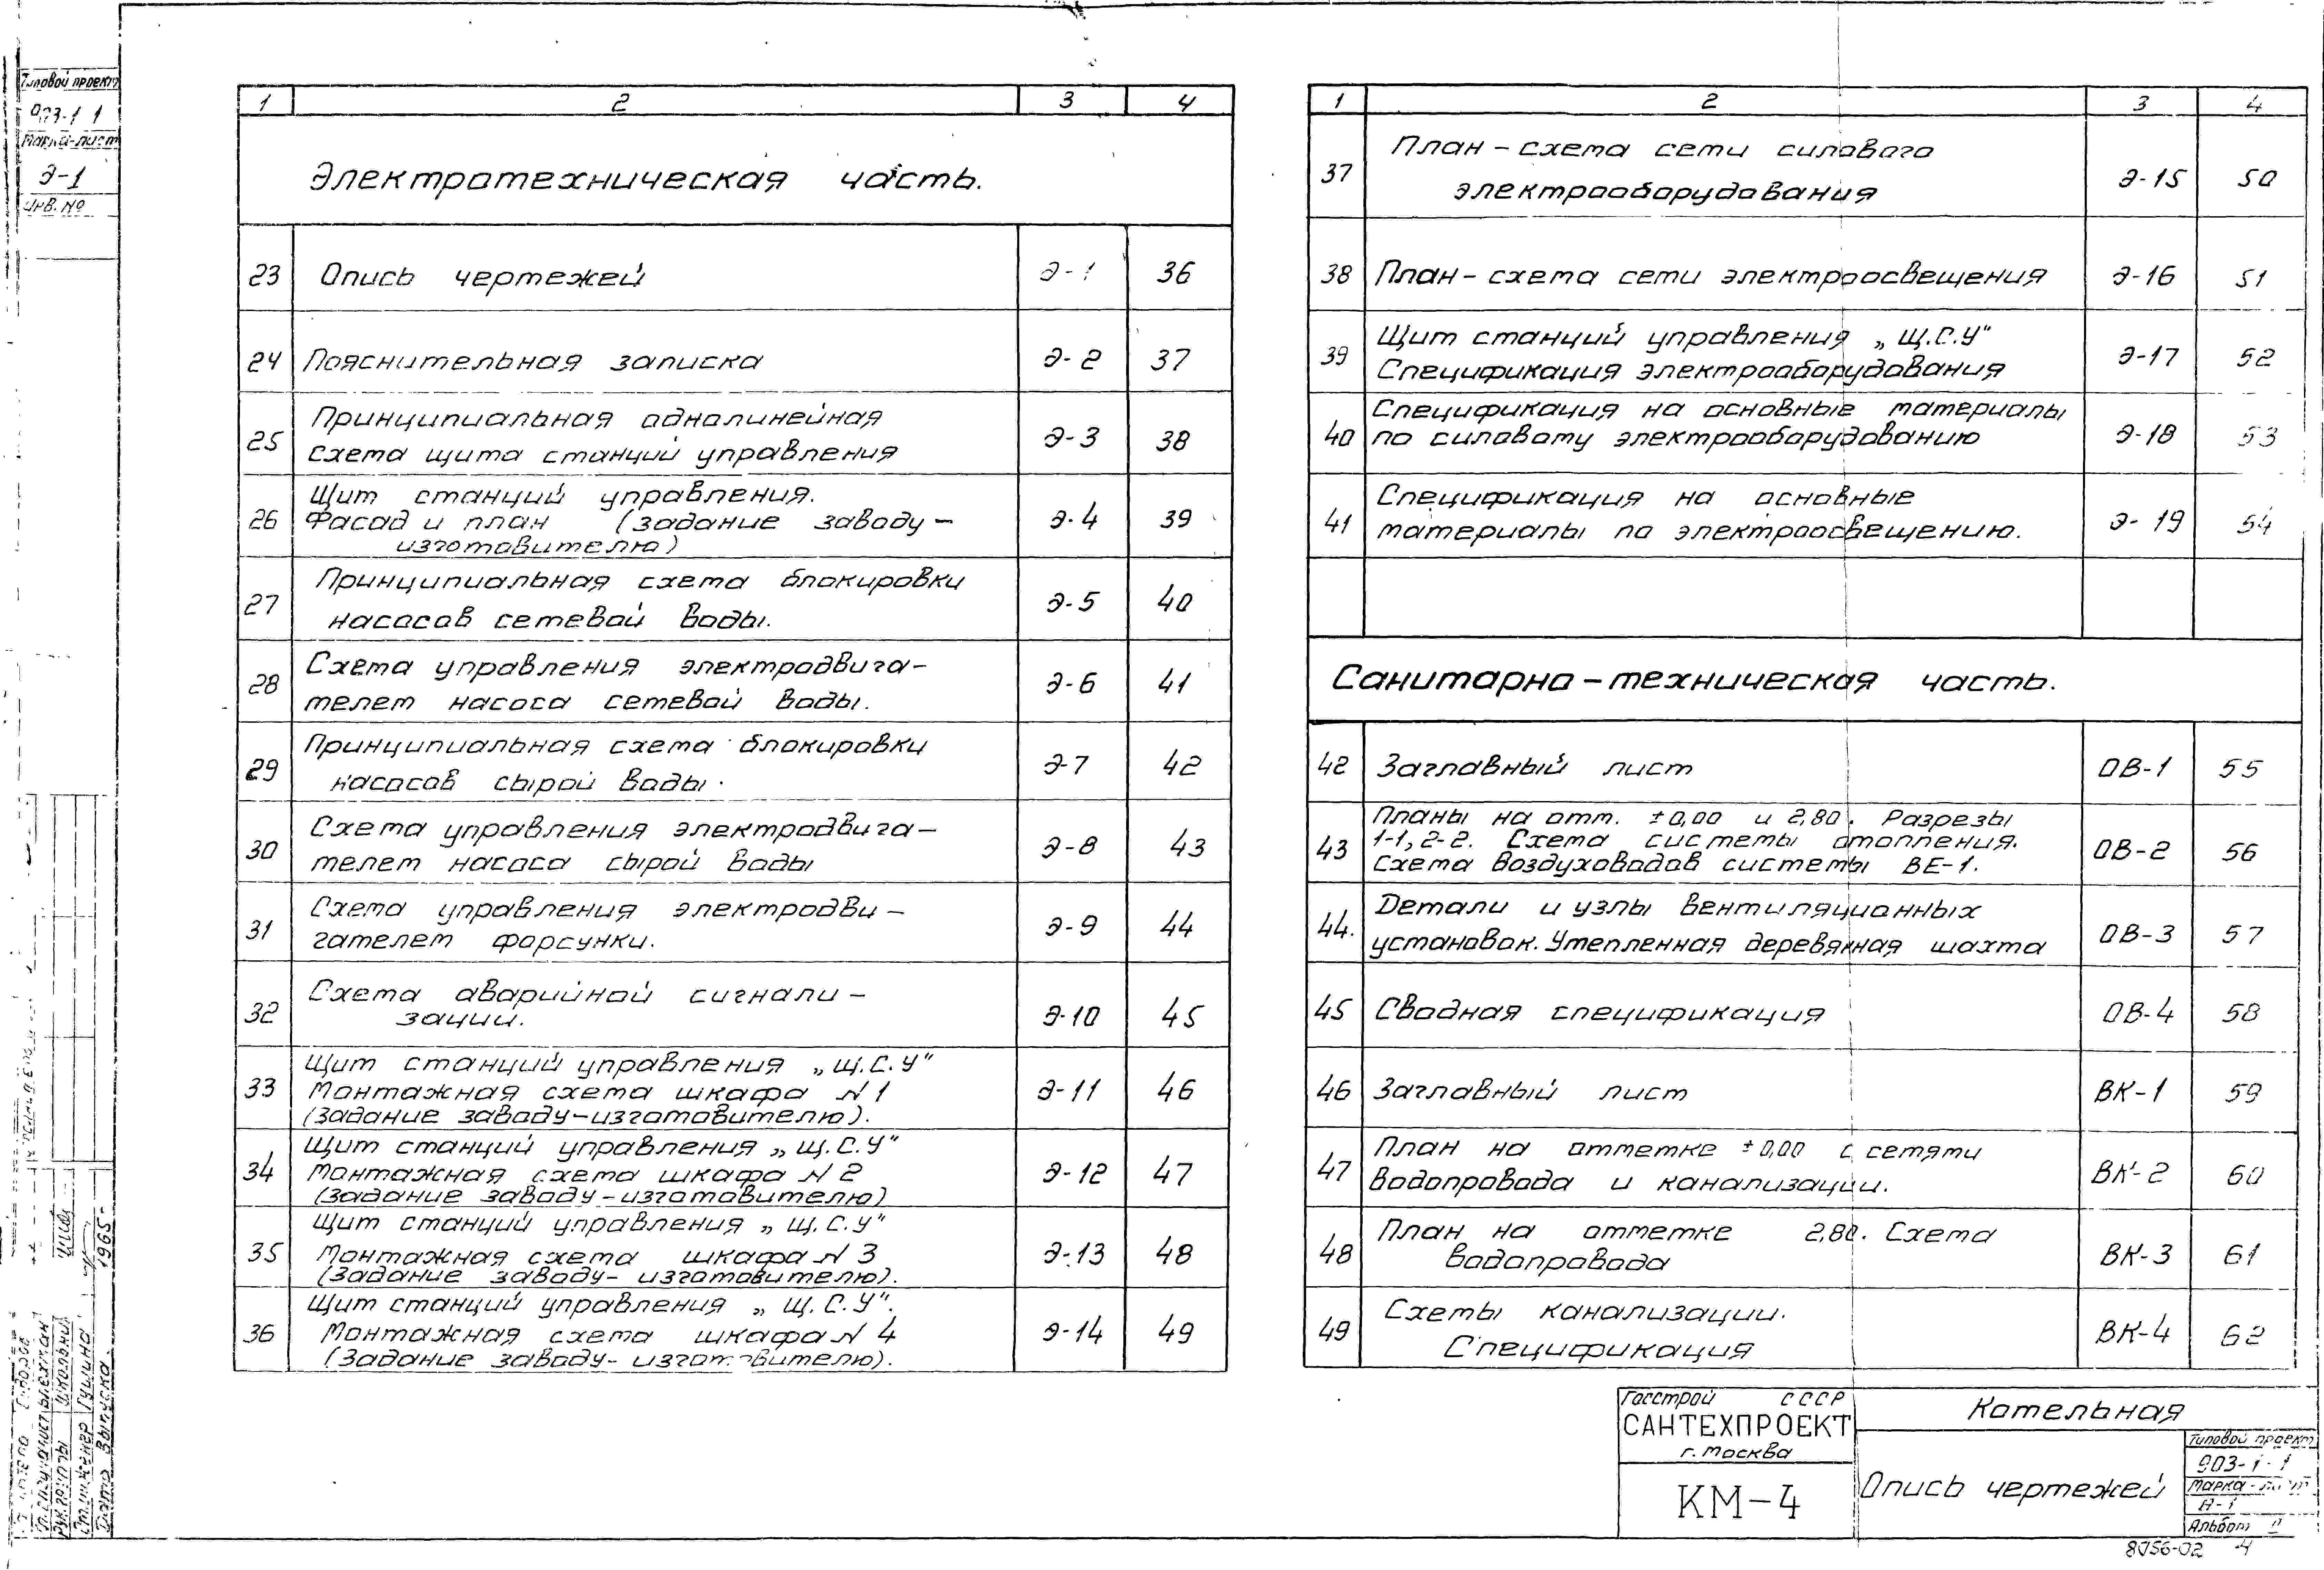 Типовой проект
903-1 1
Марка-лист
Э-1
Инв. №
1 2 3 4
Электротехническая часть.
23 Опись чертежей Э-1 36
24 Пояснительная записка Э-2 37
Принципиальная однолинейная
25 схема щита станций управления Э-3 38
Щит станций управления.
26 Фасад и план (задание заводу- Э-4 39
изготовителю)
Принципиальная схема блокировки
27 насосов сетевой воды. Э-5 40
Схема управления электродвига-
28 телем насоса сетевой воды. Э-6 41
Принципиальная схема блокировки
29 насосов сырой воды. Э-7 42
Схема управления электродвига-
30 телем насоса сырой воды Э-8 43
Схема управления электродви-
31 гателем форсунки. Э-9 44
Схема аварийной сигнали-
32 зации. Э-10 45
Щит станций управления „Щ.С.У"
33 Монтажная схема шкафа N 1 Э-11 46
(Задание заводу-изготовителю).
Щит станций управления „Щ.С.У"
34 Монтажная схема шкафа N 2 Э-12 47
(Задание заводу-изготовителю)
Щит станций управления „Щ.С.У"
35 Монтажная схема шкафа N 3 Э-13 48
(Задание заводу-изготовителю).
Щит станций управления „Щ.С.У".
36 Монтажная схема шкафа N 4 Э-14 49
(Задание заводу-изготовителю).
1 2 3 4
План-схема сети силового
37 электрооборудования Э-15 50
38 План-схема сети электроосвещения Э-16 51
Щит станций управления „Щ.С.У"
39 Спецификация электрооборудования Э-17 52
Спецификация на основные материалы
40 по силовому электрооборудованию Э-18 53
Спецификация на основные
41 материалы по электроосвещению. Э-19 54
Санитарно-техническая часть.
42 Заглавный лист ОВ-1 55
Планы на отм. ±0,00 и 2,80. Разрезы
43 1-1, 2-2. Схема системы отопления. ОВ-2 56
Схема воздуховодов системы ВЕ-1.
Детали и узлы вентиляционных
44. установок. Утепленная деревянная шахта ОВ-3 57
45 Сводная спецификация ОВ-4 58
46 Заглавный лист ВК-1 59
План на отметке ±0,00 с сетями
47 водопровода и канализации. ВК-2 60
План на отметке 2,80. Схема
48 водопровода ВК-3 61
Схемы канализации.
49 Спецификация ВК-4 62
Госстрой СССР
САНТЕХПРОЕКТ
г. Москва
КМ-4
Котельная
Опись чертежей
Типовой проект
903-1-1
Марка-лист
Альбом II
8056-02 4
Рук. группы Школьник
Ст. инженер Гущина
Дата выпуска 1965